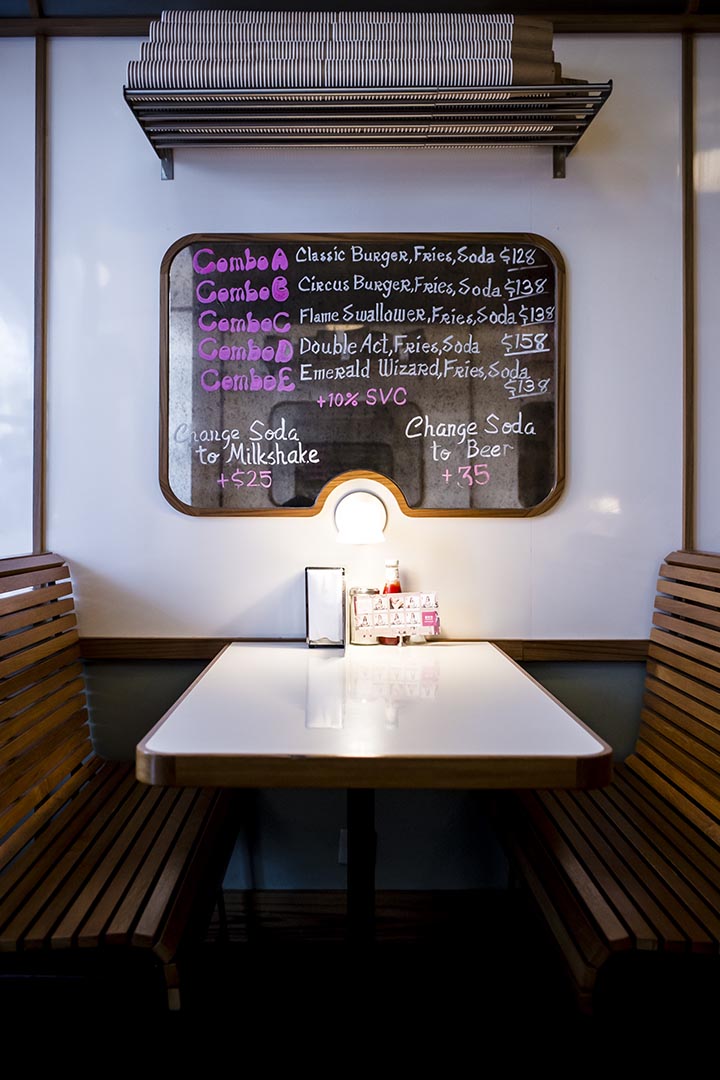 Combo A Classic Burger,Fries,Soda $128
Combo B Circus Burger,Fries,Soda $138
Combo C Flame Swallower,Fries,Soda $138
Combo D Double Act,Fries,Soda $158
Combo E Emerald Wizard,Fries,Soda $138
+10% SVC
Change Soda to Milkshake +$25
Change Soda to Beer +35